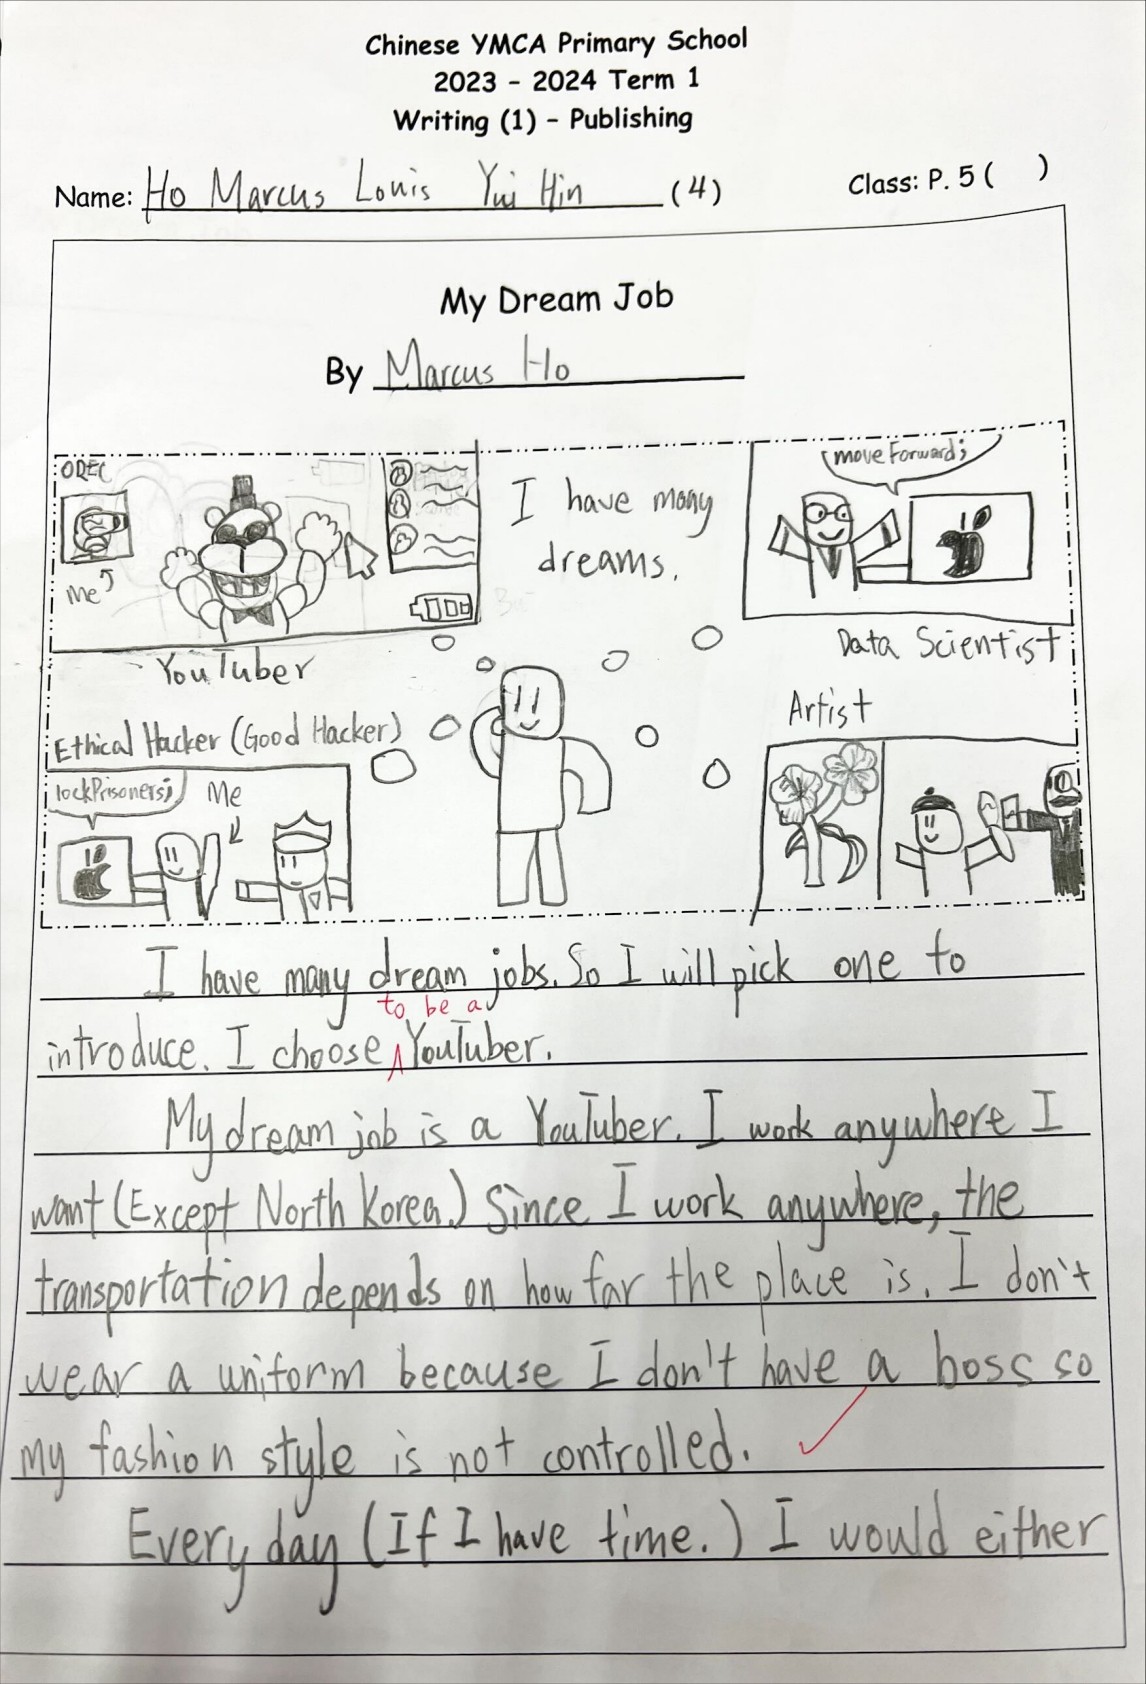 Chinese YMCA Primary School
2023 - 2024 Term 1
Writing (1) - Publishing
Name: Ho Marcus Louis Yui Hin (4) Class: P. 5 ( )
My Dream Job
By Marcus Ho
OREC
Me
YouTuber
I have many
dreams.
moveForward;
Data Scientist
Ethical Hacker (Good Hacker)
lockPrisoners;
Me
Artist
I have many dream jobs. So I will pick one to
to be a
introduce. I choose YouTuber.
My dream job is a YouTuber. I work anywhere I
want (Except North Korea.) Since I work anywhere, the
transportation depends on how far the place is. I don't
wear a uniform because I don't have a boss so
my fashion style is not controlled.
Every day (If I have time.) I would either